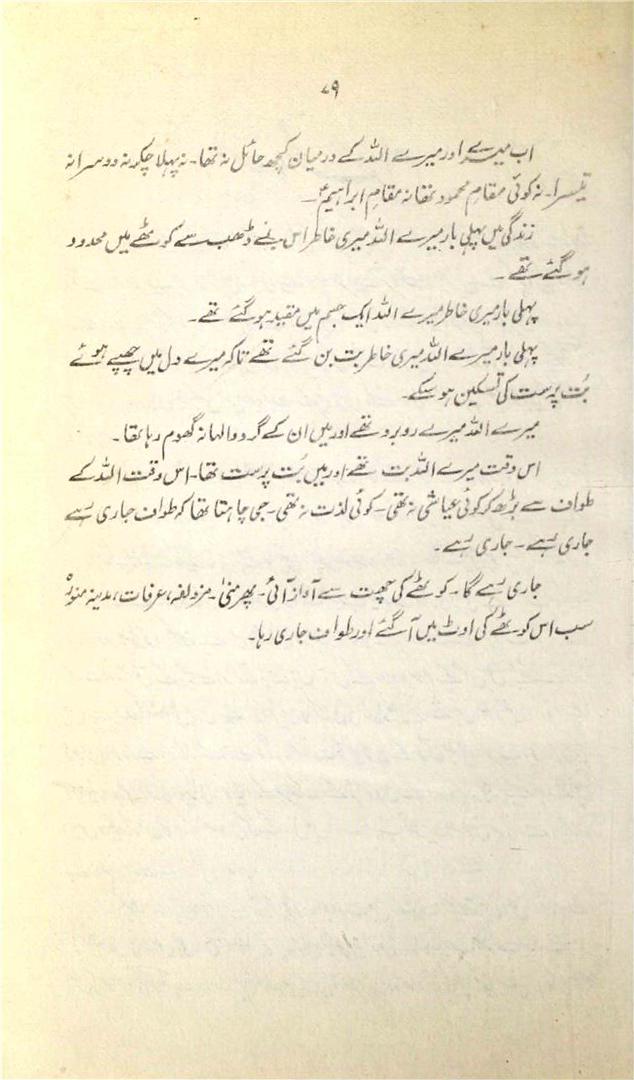 ۷۹
اب میرے اور میرے اللہ کے درمیان کچھ حائل نہ تھا۔ نہ پہلا چکر نہ دوسرا نہ
تیسرا۔ نہ کوئی مقامِ محمود تھا نہ مقامِ ابراہیمؑ۔
زندگی میں پہلی بار میرے اللہ میری خاطر اس بے ڈھب سے کوٹھے میں محدود
ہو گئے تھے۔
پہلی بار میری خاطر میرے اللہ ایک جسم میں مقید ہو گئے تھے۔
پہلی بار میرے اللہ میری خاطر بت بن گئے تھے تاکہ میرے دل میں چھپے ہوئے
بُت پرست کی تسکین ہو سکے۔
میرے اللہ میرے روبرو تھے اور میں ان کے گرد والہانہ گھوم رہا تھا۔
اس وقت میرے اللہ بت تھے اور میں بُت پرست تھا۔ اس وقت اللہ کے
طواف سے بڑھ کر کوئی عیاشی نہ تھی۔ کوئی لذت نہ تھی۔ جی چاہتا تھا کہ طواف جاری رہے
جاری رہے۔ جاری رہے۔
جاری رہے گا۔ کوٹھے کی چھت سے آواز آئی۔ پھر منیٰ۔ مزدلفہ، عرفات، مدینہ منورہ
سب اس کوٹھے کی اوٹ میں آ گئے اور طواف جاری رہا۔